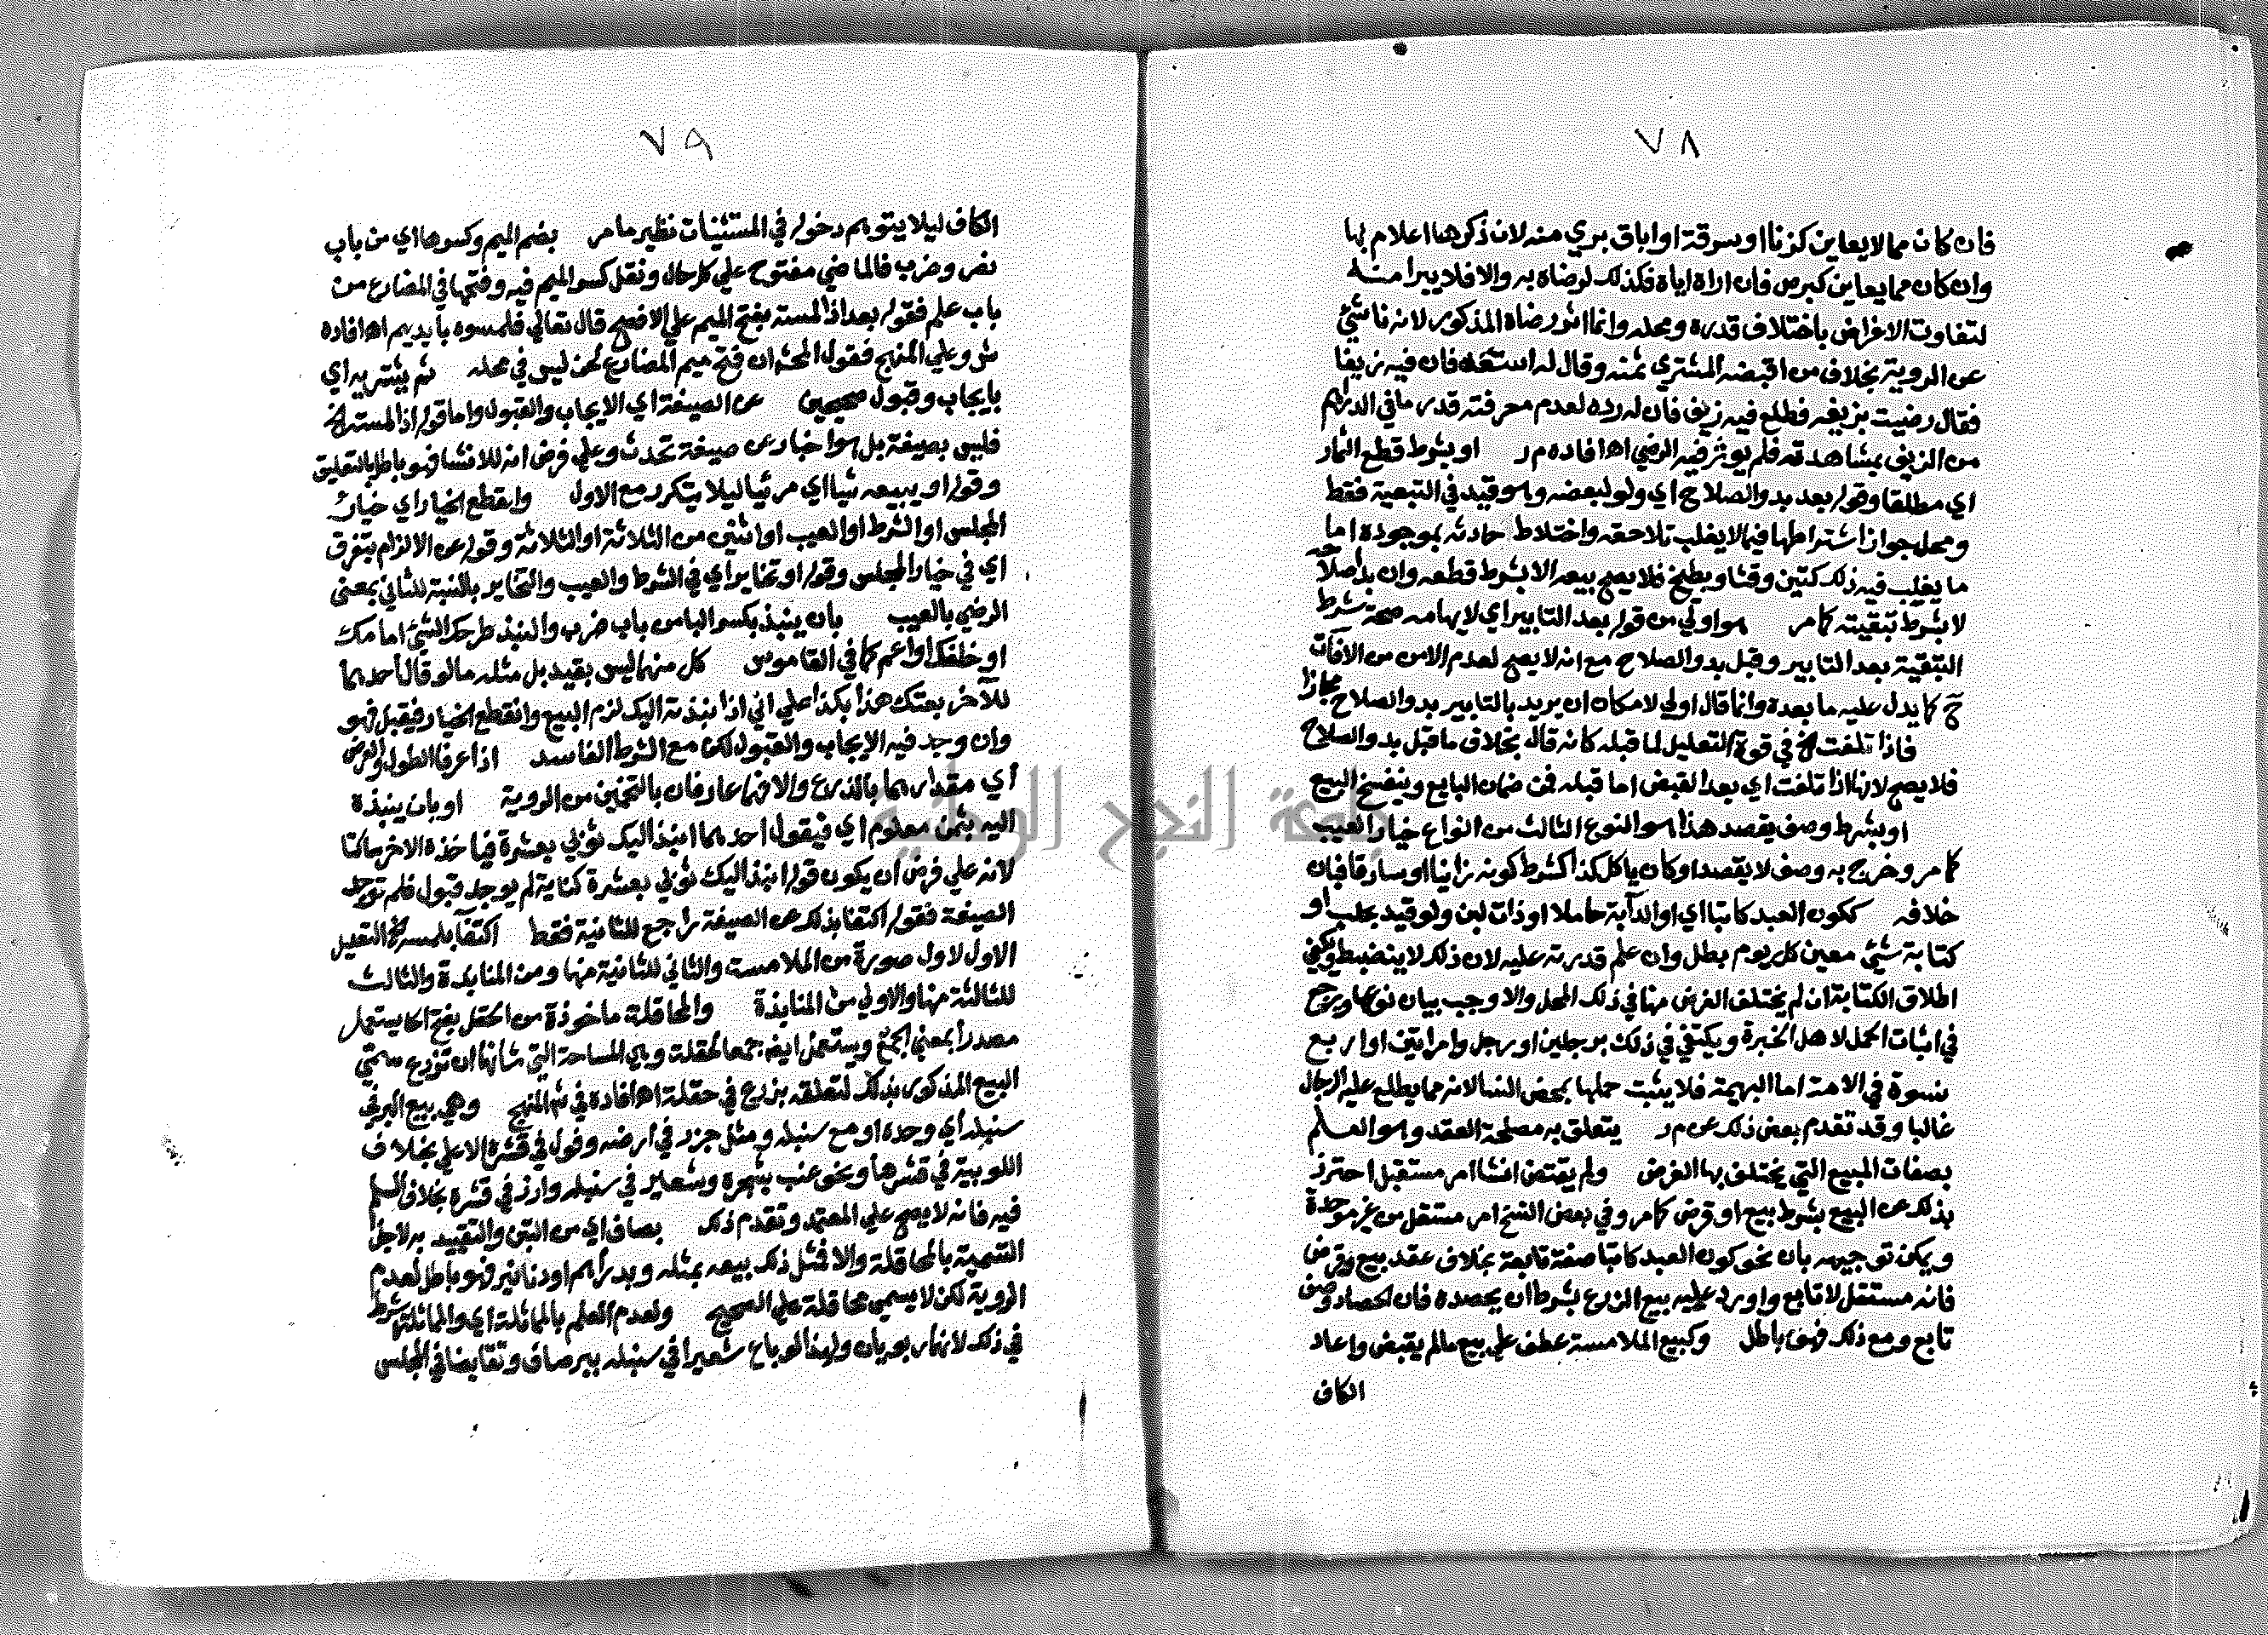 ٧٨
فان كان مما لا يعاين كزنا او سرقة او اباق بري منه لان ذكرها اعلام بها
وان كان مما يعاين كبرص فان اراه اياه فكذلك لرضاه به والا فلا يبرا منه
لتفاوت الاغراض باختلاف قدره ومحله وانما اثر رضاه المذكور لانه ناشئ
عن الروية بخلاف من اقبضه المشتري ثمنه وقال له استنقده فان فيه زيفا
فقال رضيت بزيفه فطلع فيه زيف فان له رده لعدم معرفته قدر ما في الدراهم
من الزيف بمشاهدته فلم يوثر فيه الرضي اه افاده م ر او بشرط قطع الثمار
اي مطلقا وقوله بعد بدو الصلاح اي ولو لبعضه وهو قيد في التبعية فقط
ومحل جواز اشتراطها فيما لا يغلب تلاحقه واختلاط حادثه بموجوده اما
ما يغلب فيه ذلك كتين وقثا وبطيخ فلا يصح بيعه الا بشرط قطعه وان بدا صلاحه
لا بشرط تبقيته كما مر هو اولي من قوله بعد التابير اي لايهامه صحة شرط
التبقية بعد التابير وقبل بدو الصلاح مع انه لا يصح لعدم الامن من الافات
ح كما يدل عليه ما بعده وانما قال اولي لامكان ان يريد بالتابير بدو الصلاح مجازا
فاذا تلفت الخ في قوة التعليل لما قبله كانه قال بخلاف ما قبل بدو الصلاح
فلا يصح لانها اذا تلفت اي بعد القبض اما قبله فمن ضمان البايع وينفسخ البيع
او بشرط وصف يقصد هذا هو النوع الثالث من انواع خيار العيب
كما مر وخرج به وصف لا يقصد او كان ياكل كذا كشرط كونه زانيا او سارقا فبان
خلافه ككون العبد كاتبا اي او الدابة حاملا او ذات لبن ولو قيد بحلب او
كتابة شئ معين كل يوم بطل وان علم قدرته عليه لان ذلك لا ينضبط ويكفي
اطلاق الكتابة ان لم يختلف الغرض منها في ذلك المحل والا وجب بيان نوعها ويرجع
في اثبات الحمل لاهل الخبرة ويكتفي في ذلك برجلين او رجل وامراتين او اربع
نسوة في الامة اما البهيمة فلا يثبت حملها بمحض النسا لانه مما يطلع عليه الرجال
غالبا وقد تقدم بعض ذلك عن م ر يتعلق به مصلحة العقد وهو العلم
بصفات المبيع التي يختلف بها الغرض ولم يقتض انشا امر مستقبل احترز
بذلك عن البيع بشرط بيع او قرض كما مر وفي بعض النسخ امر مستقل من غير موحدة
ويمكن توجيهه بان نحو كون العبد كاتبا صفة تابعة بخلاف عقد بيع وقرض
فانه مستقل لا تابع واورد عليه بيع الزرع بشرط ان يحصده فان الحصاد وصف
تابع ومع ذلك فهو باطل وكبيع الملامسة عطف علي بيع مالم يقبض واعاد
الكاف
٧٩
الكاف ليلا يتوهم دخوله في المستثنيات نظير ما مر بضم الميم وكسرها اي من باب
نصر وضرب فالماضي مفتوح علي كل حال ونقل كسر الميم فيه وفتحها في المضارع من
باب علم فقوله بعد اذا لمسته بفتح الميم علي الافصح قال تعالي فلمسوه بايديهم اه افاده
ش وعلي المنهج فقول المحشي ان فتح ميم المضارع لحن ليس في محله ثم يشتريه اي
بايجاب وقبول صحيحين عن الصيغة اي الايجاب والقبول واما قوله اذا لمسته الخ
فليس بصيغة بل هو اخبار عن صيغة تحدث وعلي فرض انه للانشا فهو باطل بالتعليق
وقوله او يبيعه شيا اي مرئيا ليلا يتكرر مع الاول وانقطع الخيار اي خيار
المجلس او الشرط او العيب او اثنين من الثلاثة او الثلاثة وقوله عن الالزام بتفرق
اي في خيار المجلس وقوله او تخاير اي في الشرط والعيب والتخاير بالنسبة للثاني بمعني
الرضي بالعيب بان ينبذ بكسر البا من باب ضرب والنبذ طرحك الشئ امامك
او خلفك او اعم كما في القاموس كل منهما ليس بقيد بل مثله ما لو قال احدهما
للآخر بعتك هذا بكذا علي اني اذا نبذته اليك لزم البيع وانقطع الخيار فيقبل فهو
وان وجد فيه الايجاب والقبول لكن مع الشرط الفاسد اذا عرفا الطول والعرض
اي مقدارهما بالذرع والا فهما عارفان بالتخمين من الروية او بان ينبذه
اليه بثمن معلوم اي فيقول احدهما انبذ اليك ثوبي بعشرة فياخذه الاخر ساكتا
لانه علي فرض ان يكون قوله انبذ اليك ثوبي بعشرة كناية لم يوجد قبول فلم توجد
الصيغة فقوله اكتفا بذلك عن الصيغة راجع للثانية فقط اكتفا بلمسه الخ التعليل
الاول لاول صورة من الملامسة والثاني للثانية منها ومن المنابذة والثالث
للثالثة منها والاولي من المنابذة والمحاقلة ماخوذة من الحقل بفتح الحا يستعمل
مصدرا بمعني الجمع ويستعمل ايضا جمعا لحقلة وهي المساحة التي شانها ان تزرع سمي
البيع المذكور بذلك لتعلقه بزرع في حقلة اه افاده في ش المنهج وهي بيع البر في
سنبله اي وحده او مع سنبله ومثل جزر في ارضه وفول في قشره الاعلي بخلاف
اللوبية في قشرها ونحو عنب بشجره وشعير في سنبله وارز في قشره بخلاف السلم
فيه فانه لا يصح علي المعتمد وتقدم ذلك بصاف اي من التبن والتقييد به لاجل
التسمية بالمحاقلة والا فمثل ذلك بيعه بمثله وبدراهم او دنانير فهو باطل لعدم
الروية لكن لا يسمي محاقلة علي الصحيح ولعدم العلم بالمماثلة اي والمماثلة شرط
في ذلك لانهما ربويان ولهذا لو باع شعيرا في سنبله ببر صاف وتقابضا في المجلس
جامعة النجاح الوطنية